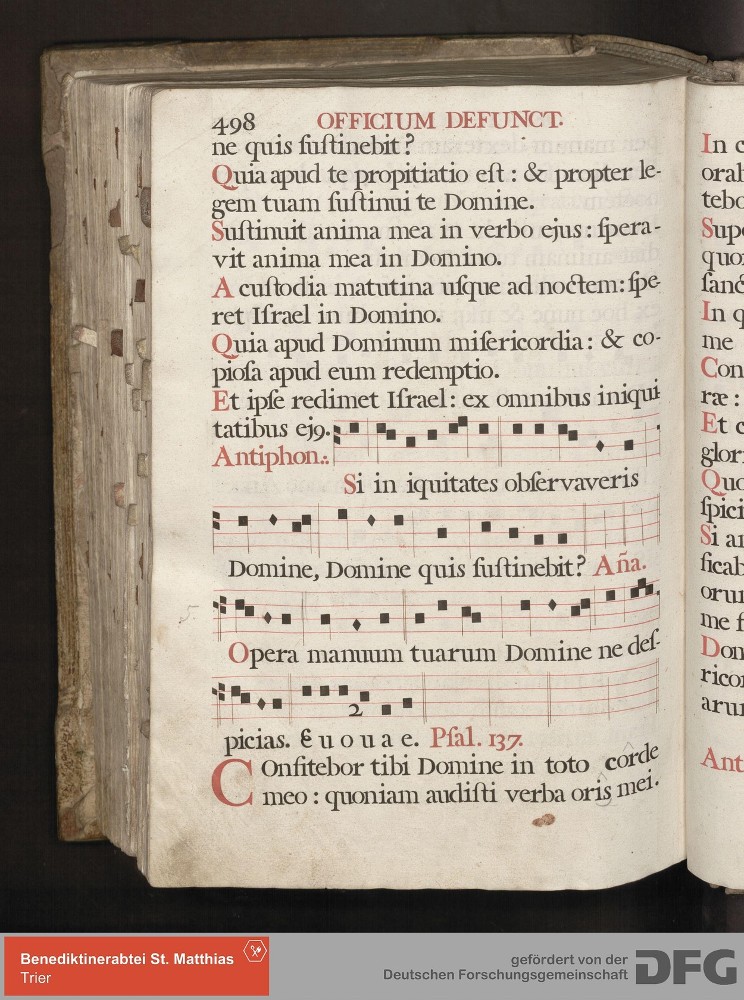 498 OFFICIUM DEFUNCT.
ne quis ſuſtinebit?
Quia apud te propitiatio eſt : & propter le-
gem tuam ſuſtinui te Domine.
Suſtinuit anima mea in verbo ejus : ſpera-
vit anima mea in Domino.
A cuſtodia matutina uſque ad noctem: ſpe
ret Iſrael in Domino.
Quia apud Dominum miſericordia : & co-
pioſa apud eum redemptio.
Et ipſe redimet Iſrael : ex omnibus iniqui
tatibus ej9.
Antiphon.:.
Si in iquitates obſervaveris
Domine, Domine quis ſuſtinebit? Aña.
Opera manuum tuarum Domine ne deſ-
2
picias. E u o u a e. Pſal. 137.
COnfitebor tibi Domine in toto corde
meo : quoniam audiſti verba oris mei.
In c
orat
tebo
Supe
quo
ſanc
In q
me
Con
ræ :
Et c
glor
Quo
ſpici
Si a
ficab
oru
me f
Dom
rico
aru
Ant
Benediktinerabtei St. Matthias
Trier
gefördert von der
Deutschen Forschungsgemeinschaft DFG